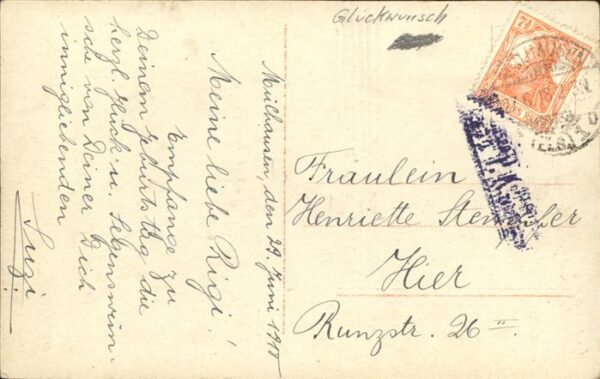 Glückwunsch
Mülhausen, den 29. Juni 1917
Meine liebe Rigi!
Empfange zu
Deinem Geburtstag die
herzl. Glück- u. Segenswün-
sche von Deiner Dich
innigliebenden
Suzi
Fräulein
Henriette
Hier
Runzstr. 26 II
7½